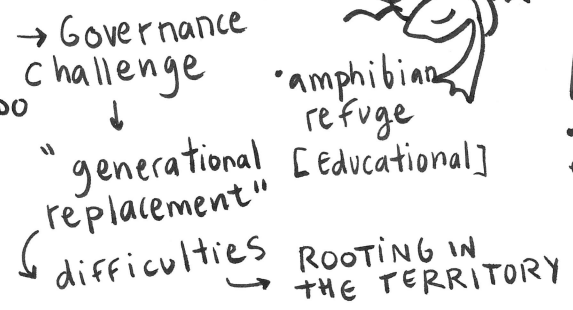 → Governance
Challenge
↓
"generational
replacement"
difficulties
→ ROOTING IN
THE TERRITORY
• amphibian
refuge
[Educational]